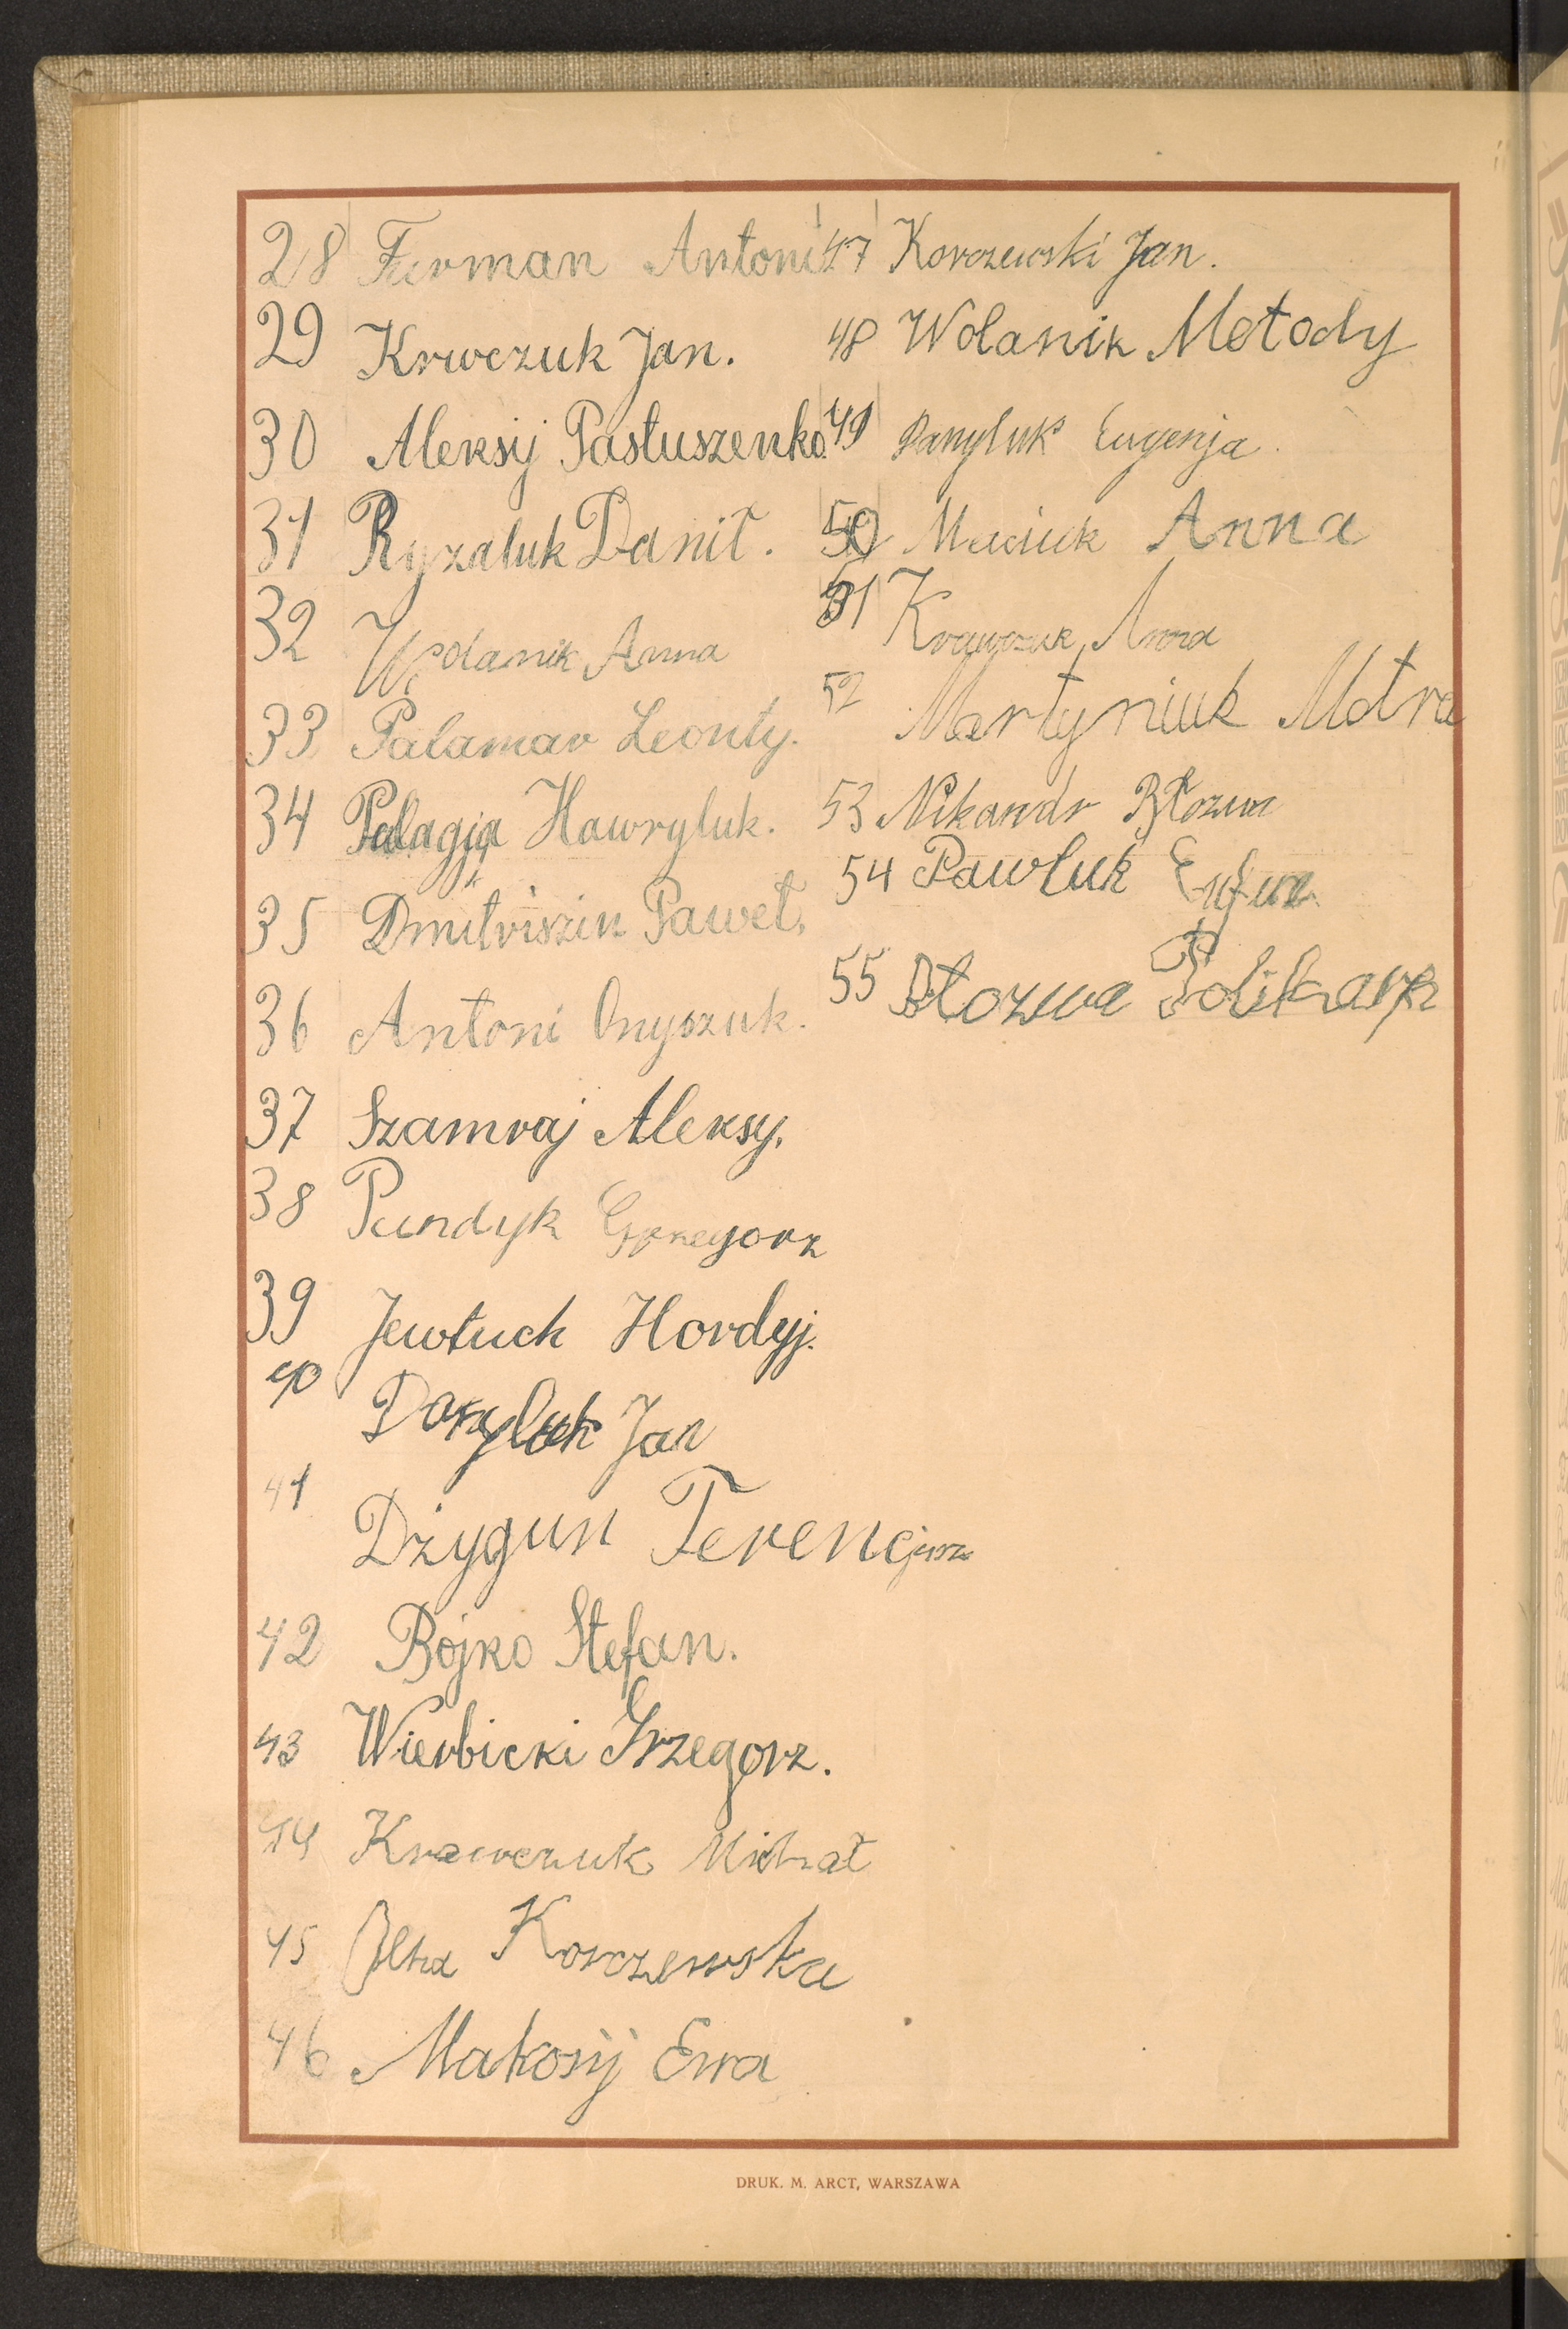 28 Furman Antoni
29 Krwczuk Jan.
30 Aleksij Pastuszenko.
31 Ryzaluk Danił.
32 Wolanik Anna
33 Palamar Leonty.
34 Palagja Hawryluk.
35 Dmitriszin Paweł.
36 Antoni Onyszuk.
37 Szamraj Aleksy.
38 Pundyk Grzegorz
39 Jewtuch Hordyj.
40 Danyluk Jan
41 Dżygun Terencjusz
42 Bojko Stefan.
43 Wierbicki Grzegorz.
44 Krawczuk Michał
45 Olha Korczewska
46 Makosij Ewa
47 Korczewski Jan.
48 Wolanik Metody
49 Danyluk Eugenja.
50 Maciuk Anna
51 Krawczuk Anna
52 Martyniuk Motra
53 Nikandr Błozwa
54 Pawluk
55 Błozwa Polikarp
DRUK. M. ARCT, WARSZAWA